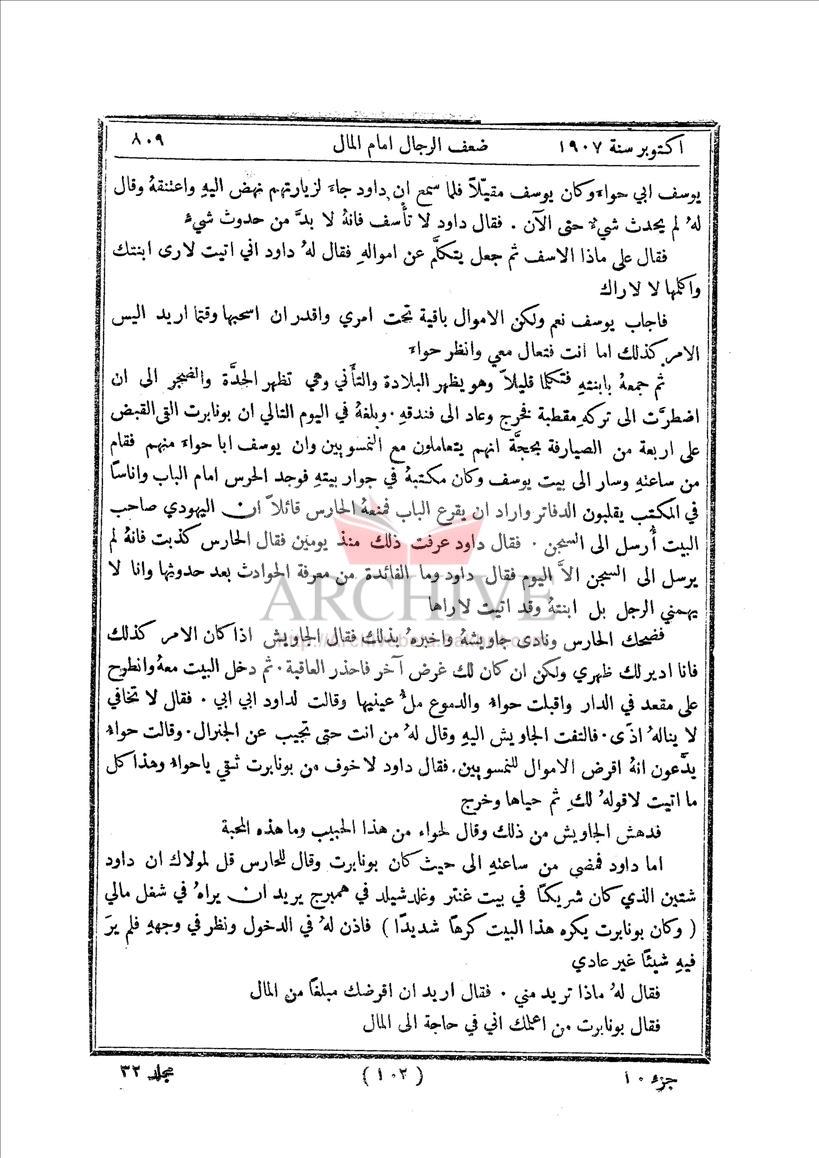 اكتوبر سنة ١٩٠٧ ضعف الرجال امام المال ٨٠٩
يوسف ابي حواء وكان يوسف مقيّلاً فلما سمع ان داود جاء لزيارتهم نهض اليهِ واعتنقهُ وقال
لهُ لم يحدث شيءٌ حتى الآن . فقال داود لا تأسف فانهُ لا بدَّ من حدوث شيءٍ
فقال على ماذا الاسف ثم جعل يتكلَّم عن اموالهِ فقال لهُ داود اني اتيت لارى ابنتك
واكلمها لا لاراك
فاجاب يوسف نعم ولكن الاموال باقية تحت امري واقدر ان اسحبها وقتما اريد اليس
الامر كذلك اما انت فتعال معي وانظر حواء
ثم جمعهُ بابنتهِ فتكلما قليلاً وهو يظهر البلادة والتأني وهي تظهر الحدَّة والضجر الى ان
اضطرَّت الى تركهِ مقطبة فخرج وعاد الى فندقهِ . وبلغهُ في اليوم التالي ان بونابرت القى القبض
على اربعة من الصيارفة بحجَّة انهم يتعاملون مع النمسويين وان يوسف ابا حواء منهم فقام
من ساعتهِ وسار الى بيت يوسف وكان مكتبهُ في جوار بيتهِ فوجد الحرس امام الباب واناسًا
في المكتب يقلبون الدفاتر واراد ان يقرع الباب فمنعهُ الحارس قائلاً ان اليهودي صاحب
البيت أُرسل الى السجن . فقال داود عرفت ذلك منذ يومين فقال الحارس كذبت فانهُ لم
يرسل الى السجن الاَّ اليوم فقال داود وما الفائدة من معرفة الحوادث بعد حدوثها وانا لا
يهمني الرجل بل ابنتهُ وقد اتيت لاراها
فضحك الحارس ونادى جاويشهُ واخبرهُ بذلك فقال الجاويش اذا كان الامر كذلك
فانا ادير لك ظهري ولكن ان كان لك غرض آخر فاحذر العاقبة . ثم دخل البيت معهُ وانطرح
على مقعد في الدار واقبلت حواء والدموع ملءُ عينيها وقالت لداود ابي ابي . فقال لا تخافي
لا ينالهُ اذًى . فالتفت الجاويش اليهِ وقال لهُ من انت حتى تجيب عن الجنرال . وقالت حواء
يدَّعون انهُ اقرض الاموال للنمسويين . فقال داود لا خوف من بونابرت ثقي يا حواء وهذا كل
ما اتيت لاقولهُ لكِ ثم حياها وخرج
فدهش الجاويش من ذلك وقال لحواء من هذا الحبيب وما هذه المحبة
اما داود فمضى من ساعتهِ الى حيث كان بونابرت وقال للحارس قل لمولاك ان داود
شتين الذي كان شريكًا في بيت غنتر وغلدشيلد في همبرج يريد ان يراهُ في شغل مالي
( وكان بونابرت يكره هذا البيت كرهًا شديدًا ) فاذن لهُ في الدخول ونظر في وجههِ فلم يرَ
فيهِ شيئًا غير عادي
فقال لهُ ماذا تريد مني . فقال اريد ان اقرضك مبلغًا من المال
فقال بونابرت من اعلمك اني في حاجة الى المال
جزء ١٠ ( ١٠٢ ) مجلد ٣٢
ARCHIVE